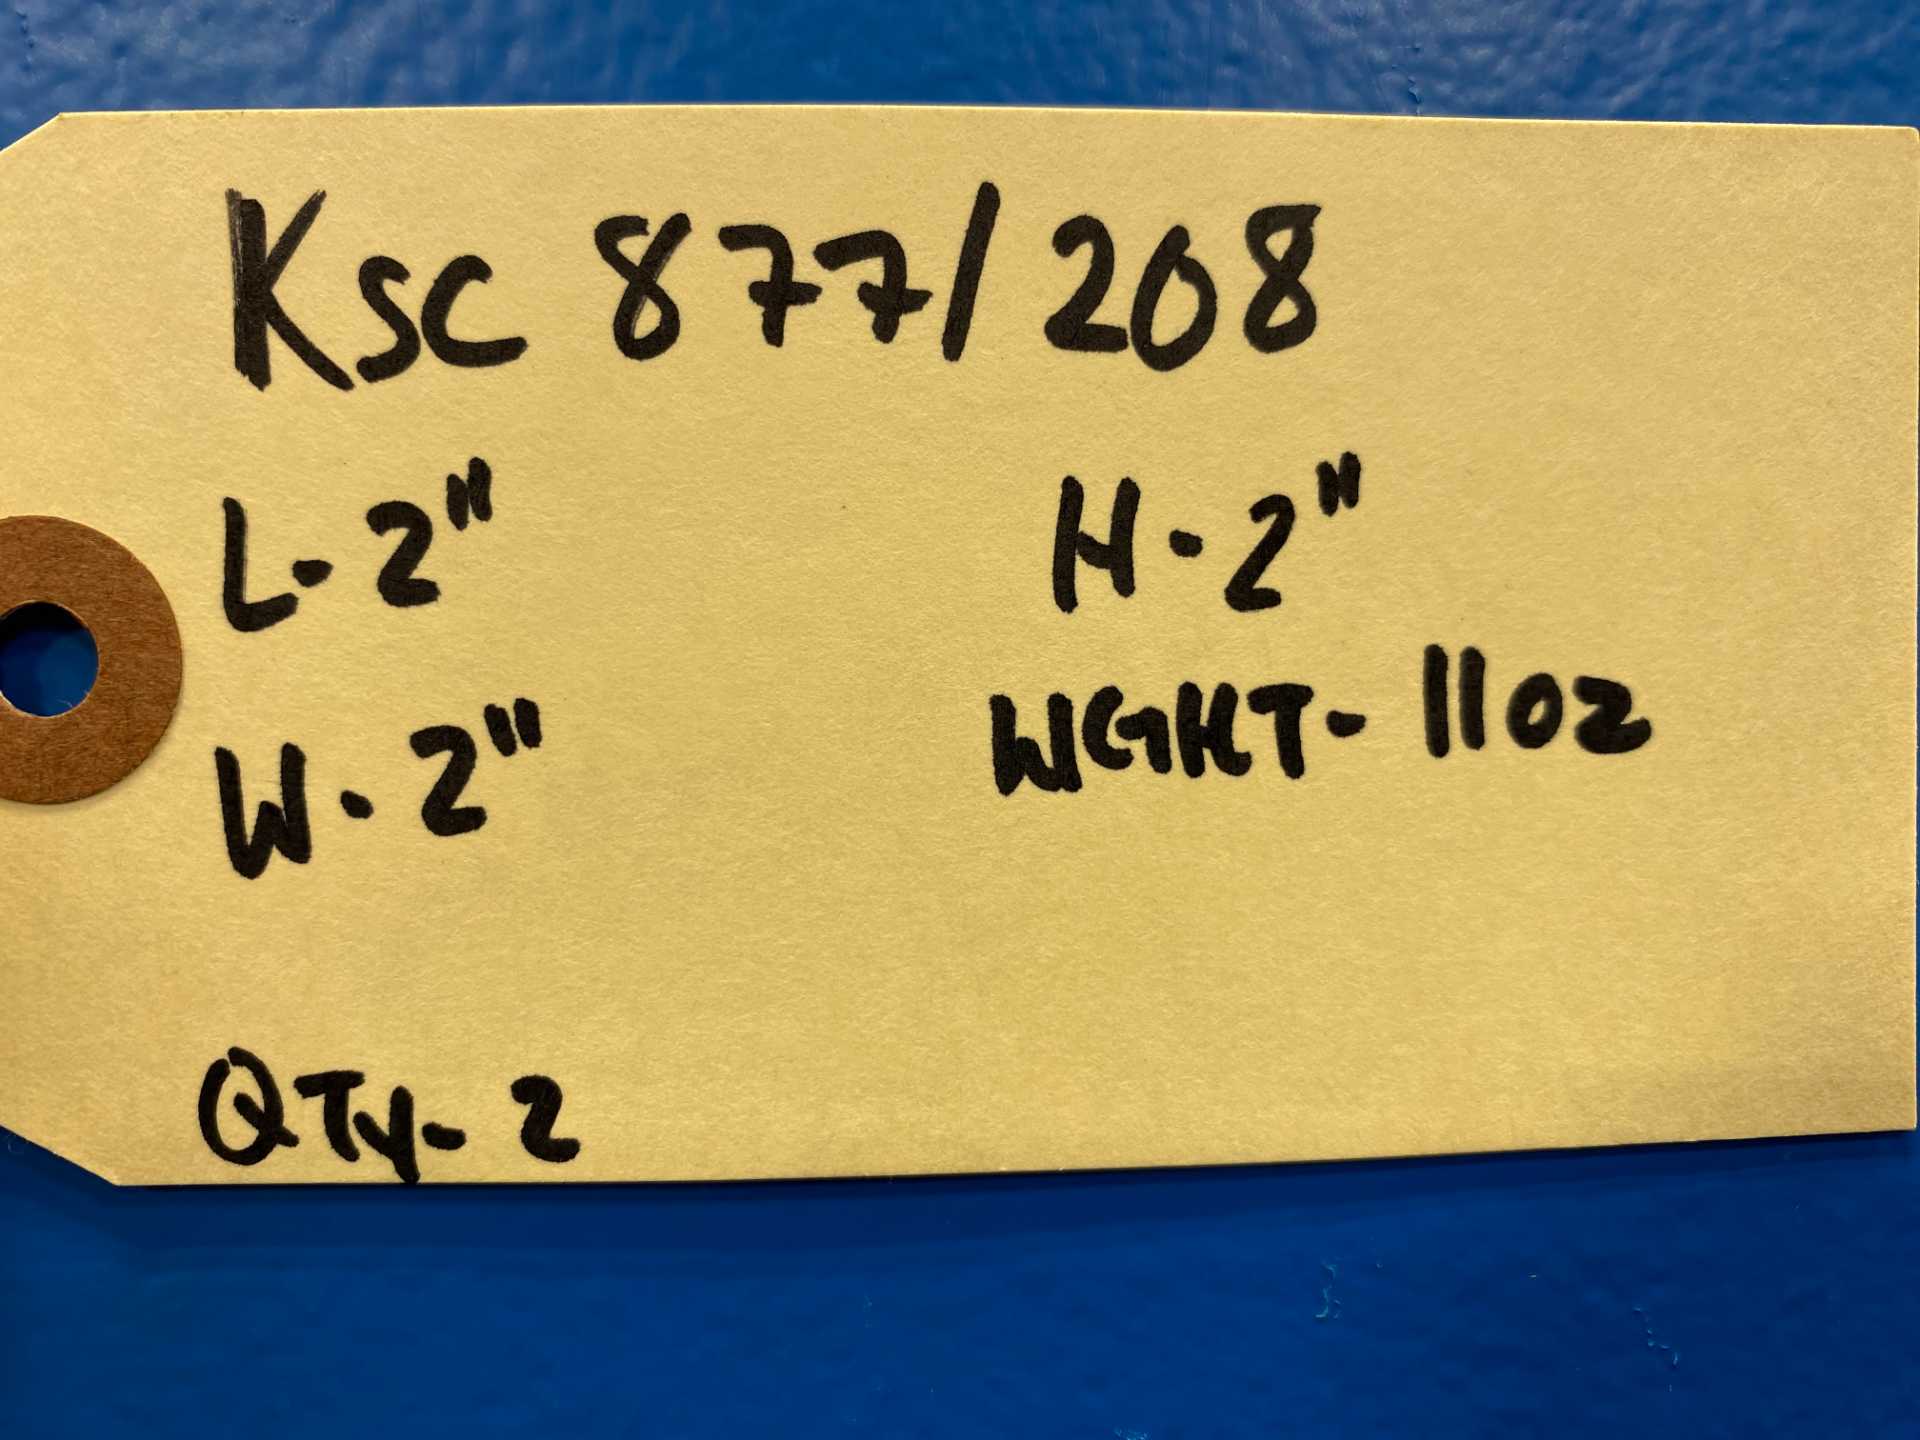 Ksc 877/208
L-2" H-2"
W-2" WGHT-11oz
QTy-2